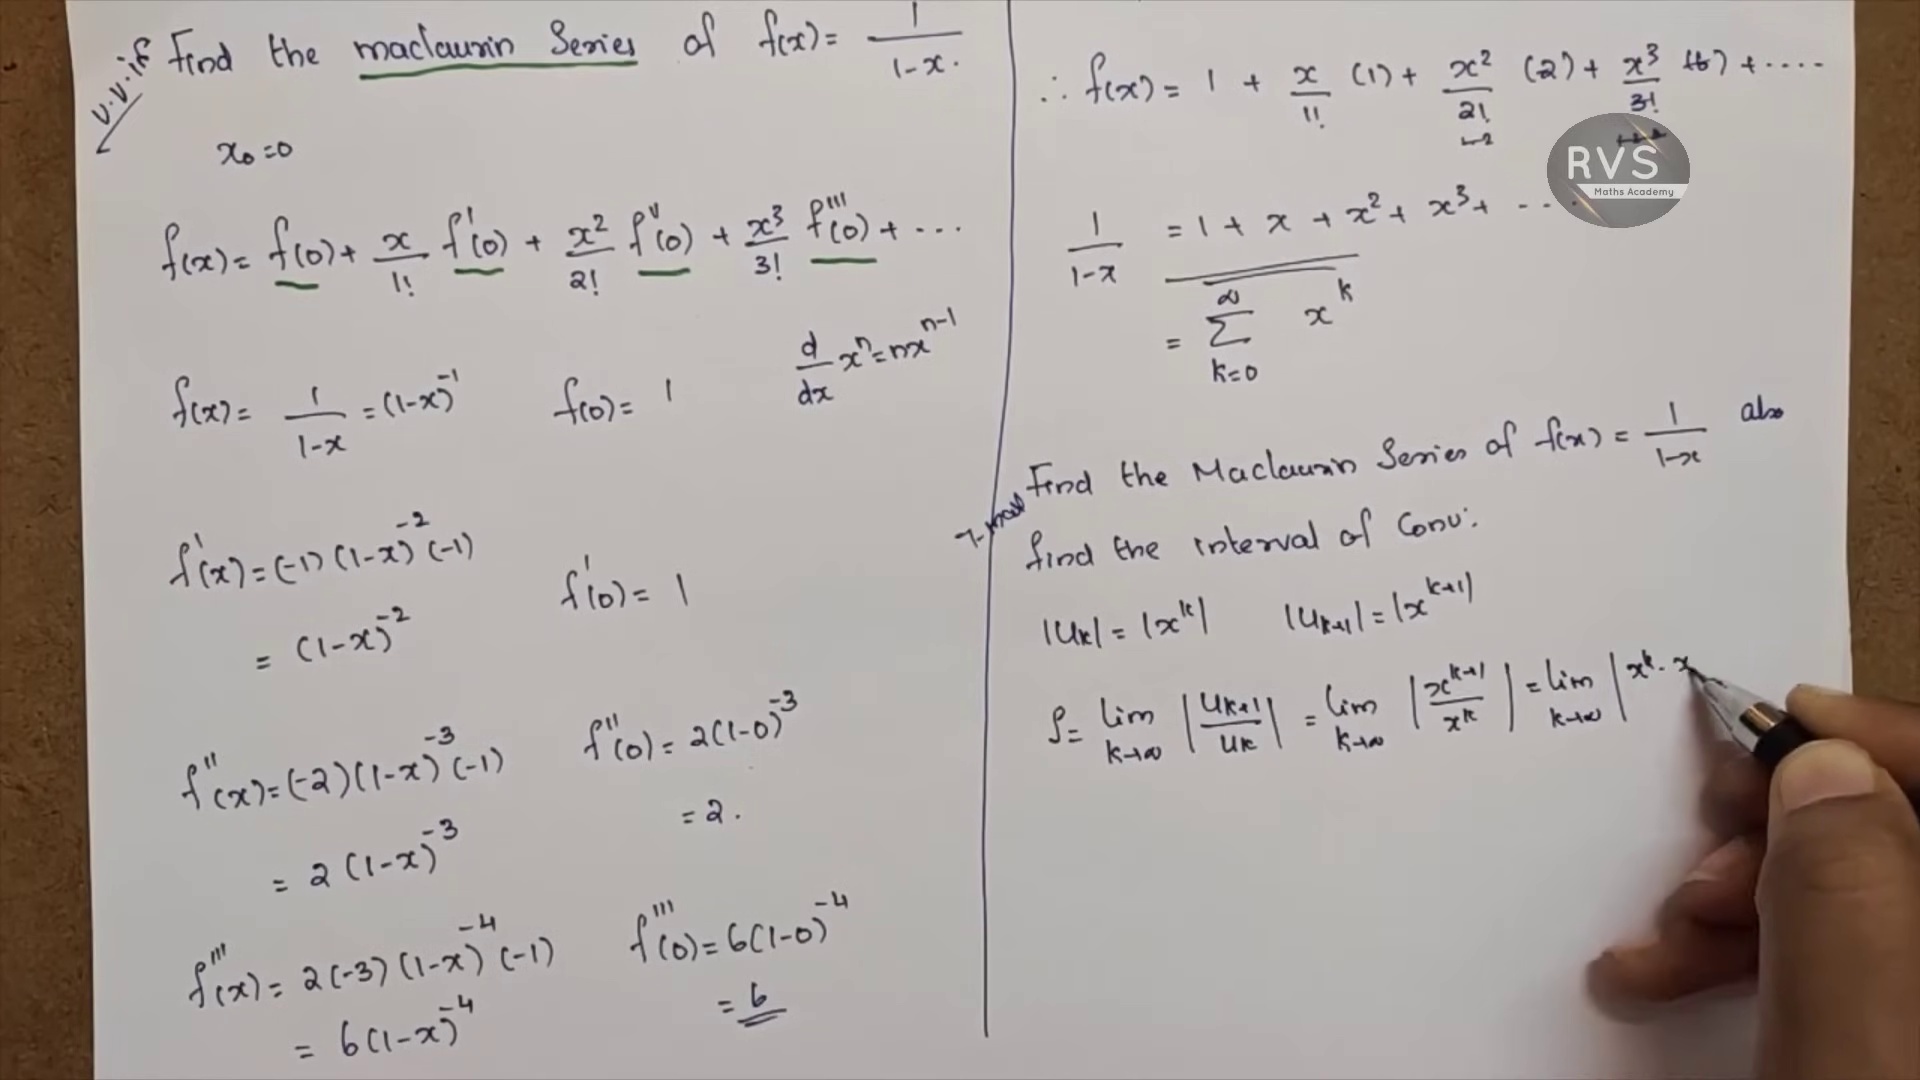 v.v.if Find the maclaurin Series of f(x) = 1/1-x.
x₀=0
f(x) = f(0) + x/1! f'(0) + x²/2! f''(0) + x³/3! f'''(0) + ...
d/dx xⁿ = nxⁿ⁻¹
f(x) = 1/1-x = (1-x)⁻¹ f(0) = 1
f'(x) = (-1)(1-x)⁻²(-1)
= (1-x)⁻² f'(0) = 1
f''(x) = (-2)(1-x)⁻³(-1) f''(0) = 2(1-0)⁻³
= 2(1-x)⁻³ = 2.
f'''(x) = 2(-3)(1-x)⁻⁴(-1) f'''(0) = 6(1-0)⁻⁴
= 6(1-x)⁻⁴ = 6
∴ f(x) = 1 + x/1! (1) + x²/2! (2) + x³/3! (6) + ....
RVS
Maths Academy
1/1-x = 1 + x + x² + x³ + ...
= ∞ Σ k=0 xᵏ
Find the Maclaurin Series of f(x) = 1/1-x also
find the interval of Conv:
|Uₖ| = |xᵏ| |Uₖ₊₁| = |xᵏ⁺¹|
ρ = lim k→∞ |Uₖ₊₁/Uₖ| = lim k→∞ |xᵏ⁺¹/xᵏ| = lim k→∞ |xᵏ. x